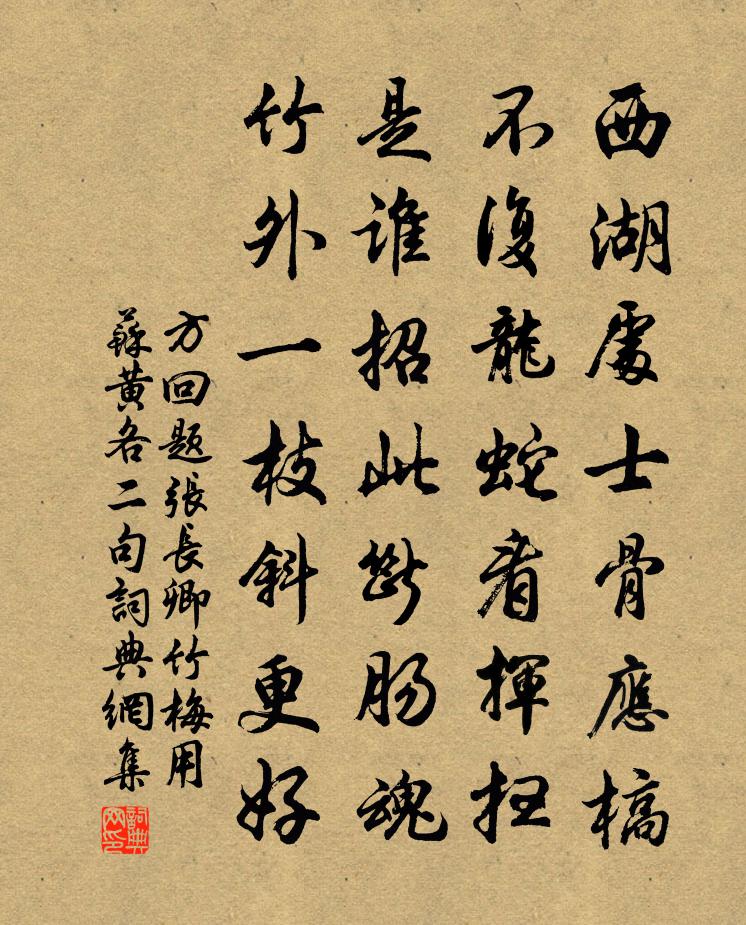 西湖處士骨應槁
不復龍蛇看揮扫
是誰招此斷腸魂
竹外一枝斜更好
方回題張長卿竹梅用
蘇黃各二句詞典網集
詞典
网印